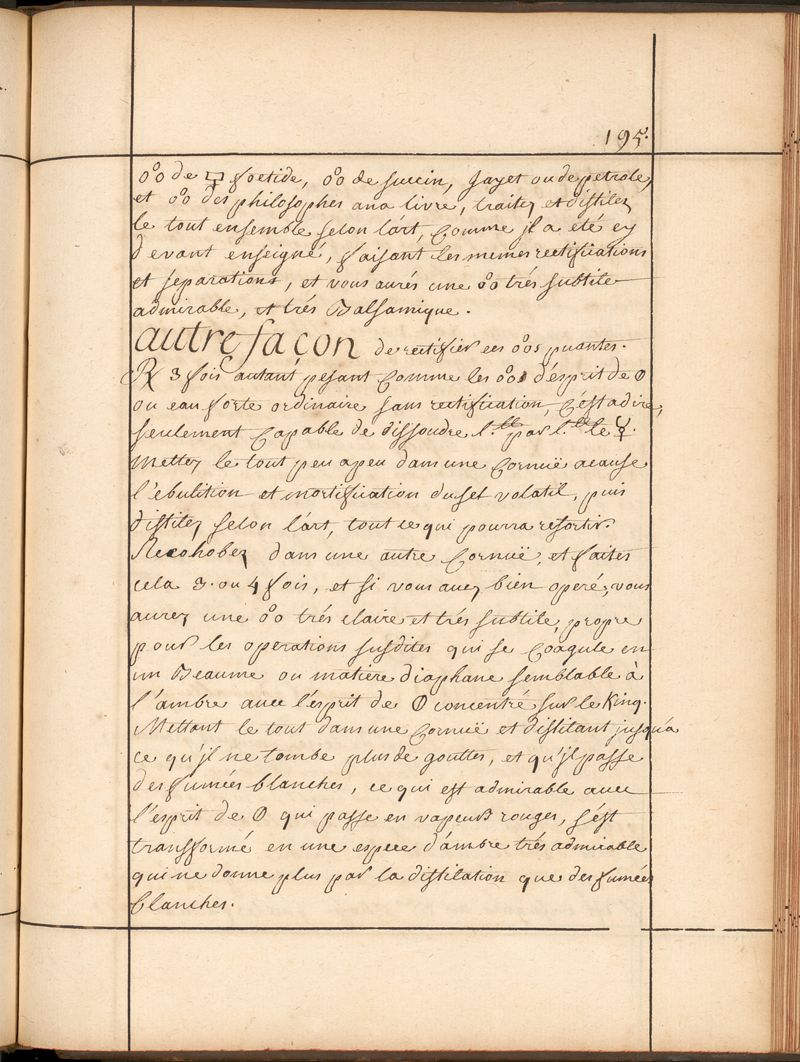 195.
o°o de 🜿 foetide, o°o de succin, Jayet ou de petrole,
et o°o des philosophes ana livre, traitez et distilez
le tout ensemble selon l'art, Comme jl a eté cy
devant enseigné, faisant les memes rectifications
et separations, et vous aurés une o°o trés subtile
admirable, et trés Balsamique.
autre façon de rectifier ces o°os puantes.
℞ 3 fois autant pesant Comme les o°os d'esprit de 🜕
ou eau forte ordinaire sans rectification, C'est a dire,
seulement Capable de dissoudre l.te par l.te le ☿.
Mettez le tout peu a peu dans une Cornuë acause
l'ebulition et mortification du sel volatil, puis
distilez selon l'art, tout ce qui pourra resortir.
Recohobez dans une autre Cornuë, et faites
cela 3. ou 4 fois, et si vous avez bien operé, vous
aurez une o°o trés claire et trés subtile, propre
pour les operations susdites qui se Coagule en
un Beaume ou matiere diaphane semblable à
l'ambre avec l'esprit de 🜕 concentré sur le King.
Mettant le tout dans une Cornuë et distilant jusqu'a
ce qu'jl ne tombe plus de gouttes, et qu'jl passe
des fumées blanches, ce qui est admirable avec
l'esprit de 🜕 qui passe en vapeurs rouges, s'est
transformé en une espece d'ambre trés admirable
qui ne donne plus par la distilation que des fumées
blanches.